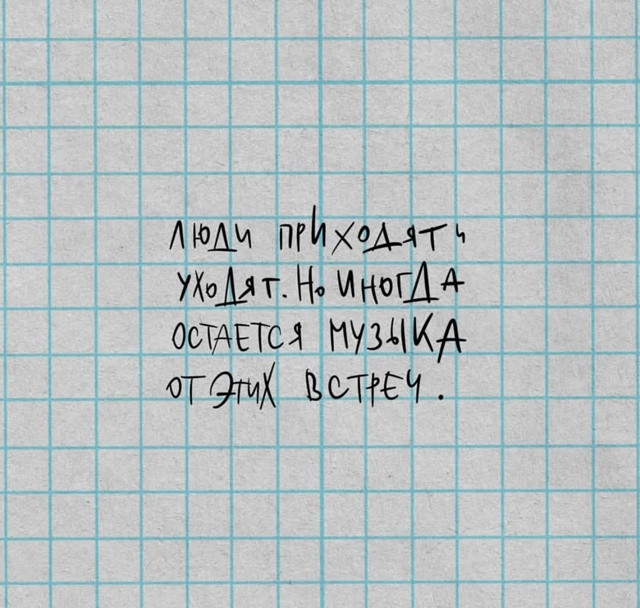 ЛЮДИ ПРИХОДЯТ И
УХОДЯТ. НО ИНОГДА
ОСТАЕТСЯ МУЗЫКА
ОТ ЭТИХ ВСТРЕЧ.